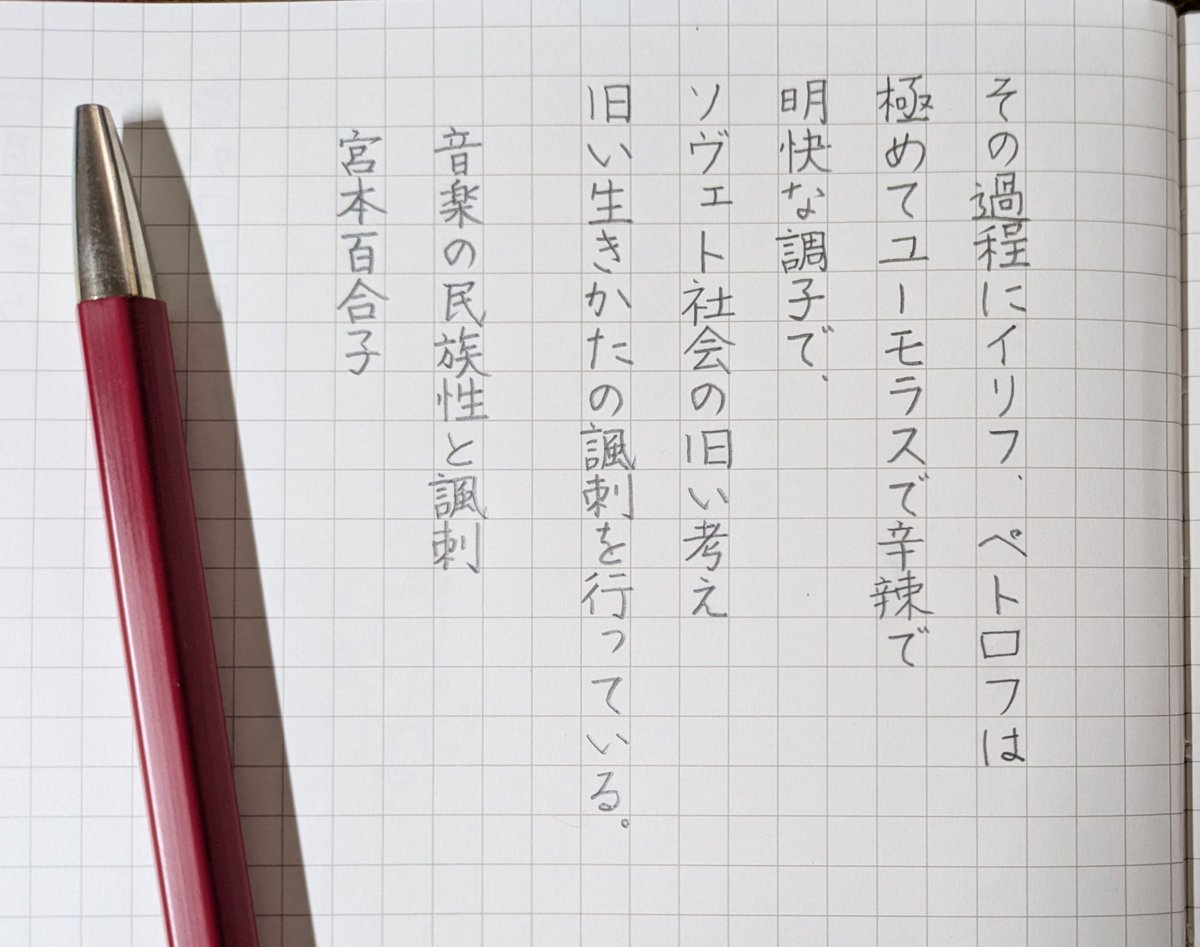 その過程にイリフ、ペトロフは
極めてユーモラスで辛辣で
明快な調子で、
ソヴェト社会の旧い考え
旧い生きかたの諷刺を行っている。
音楽の民族性と諷刺
宮本百合子